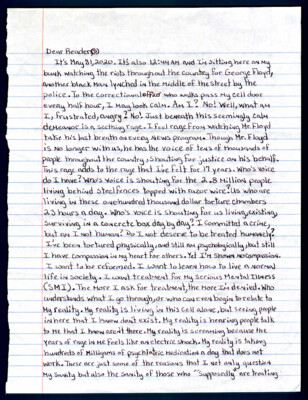 Dear Reader(s)
It's May 31, 2020. It's also 12:44 AM and I'm sitting here on my
bunk watching the riots throughout the country for George Floyd,
another black man lynched in the middle of the street by the
police. To the correctional officer who walks pass my cell door
every half hour, I may look calm. Am I? No! Well, what am
I, frustrated, angry? No! Just beneath this seemingly calm
demeanor is a seething rage. I feel rage from watching Mr. Floyd
take his last breath on every News program. Though Mr. Floyd
is no longer with us, he has the voice of tens of thousands of
people throughout the country, shouting for justice on his behalf.
This rage adds to the rage that I've felt for 17 years. Who's voice
do I have? Who's voice is shouting for the 2.8 million people
living behind steel fences topped with razor wire. Us who are
living in these one hundred thousand dollar torture chambers
23 hours a day. Who's voice is shouting for us living, existing,
surviving in a concrete box day by day? I committed a crime,
but am I not human? Do I not deserve to be treated humanely?
I've been tortured physically, and still am psychologically, but still
I have compassion in my heart for others. Yet I'm shown no compassion.
I want to be reformed. I want to learn how to live a normal
life in society. I want treatment for my Serious Mental Illness
(SMI). The more I ask for treatment, the more I'm denied. Who
understands what I go through, or who can even begin to relate to
My reality. My reality is living in this cell alone, but seeing people
in here that I know don't exist. My reality is hearing people talk
to me that I know aren't there. My reality is screaming because the
years of rage in me feels like an electric shock. My reality is taking
hundreds of milligrams of psychiatric medication a day that does not
work. These are just some of the reasons that I not only question
my sanity but also the sanity of those who "supposedly" are treating